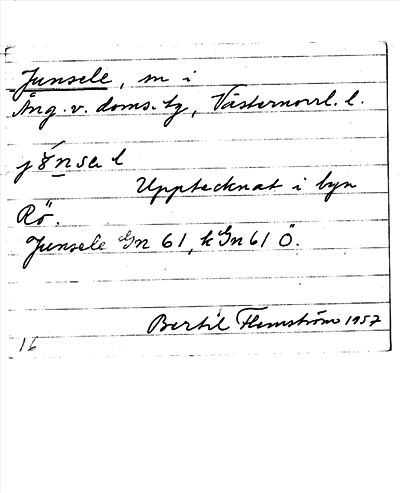 Junsele, sn i
Ång. v. doms. tg, Västernorrl. l.
Upptecknat i byn
Rö.
Junsele Gn 61, k Gn 61 Ö.
Bertil Flemström 1957
16